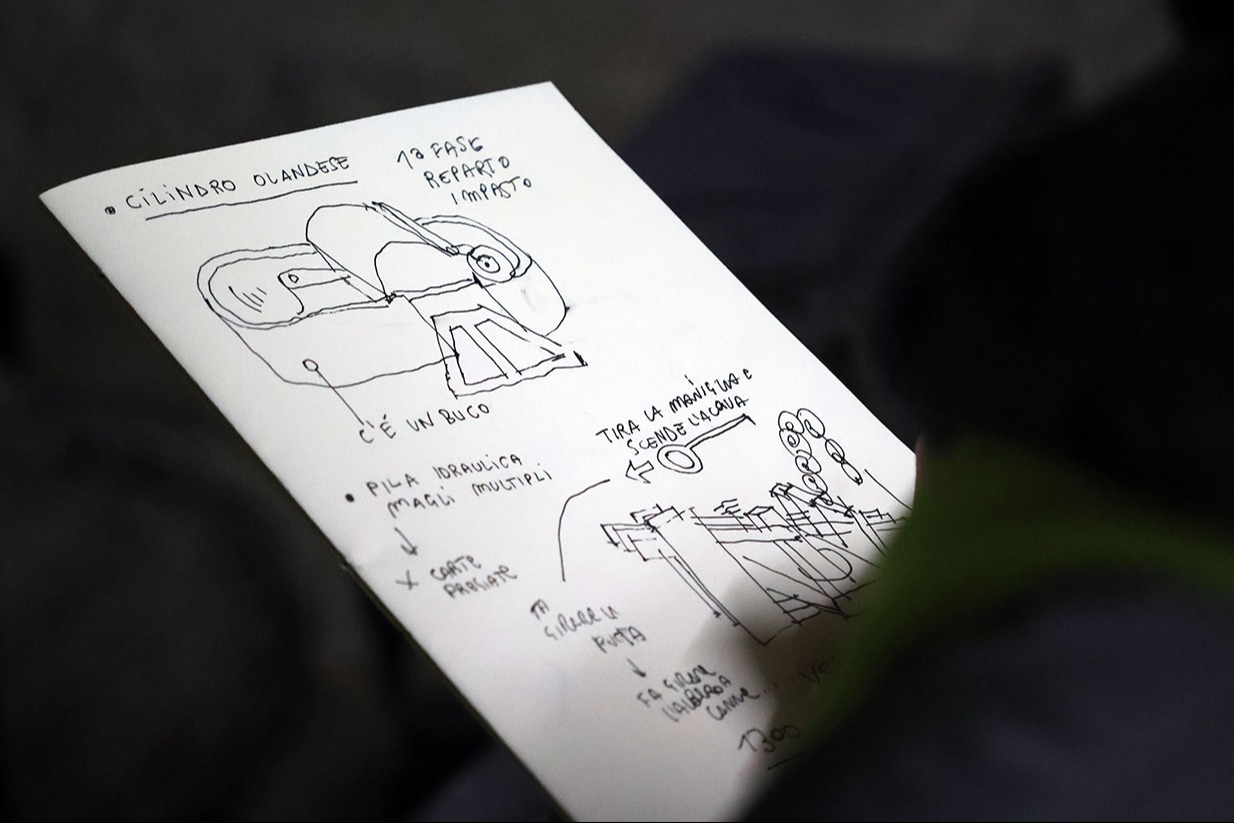 • CILINDRO OLANDESE
1ª FASE
REPARTO
IMPASTO
C'É UN BUCO
• PILA IDRAULICA
MAGLI MULTIPLI
X CARTE
TIRA LA MANIGLIA E
SCENDE L'ACQUA
FA
GIRARE LA
RUOTA
FA GIRARE
1300